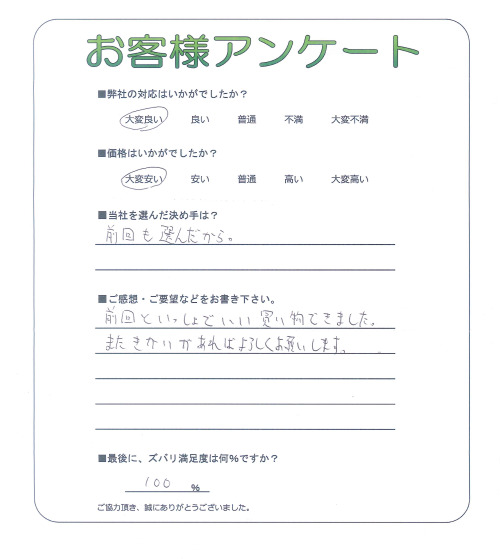 お客様アンケート
■弊社の対応はいかがでしたか？
大変良い 良い 普通 不満 大変不満
■価格はいかがでしたか？
大変安い 安い 普通 高い 大変高い
■当社を選んだ決め手は？
前回も選んだから。
■ご感想・ご要望などをお書き下さい。
前回といっしょでいい買い物できました。
またきかいがあればよろしくお願いします。
■最後に、ズバリ満足度は何%ですか？
100 %
ご協力頂き、誠にありがとうございました。